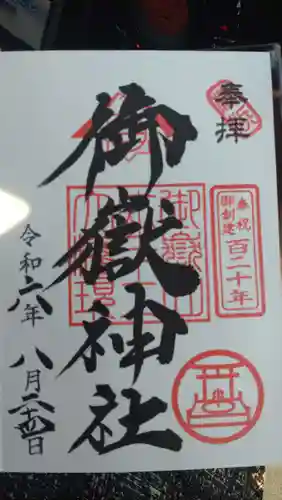 奉拝
奉祝
御創建
百二十年
御嶽神社
令和六年
八月二十四日